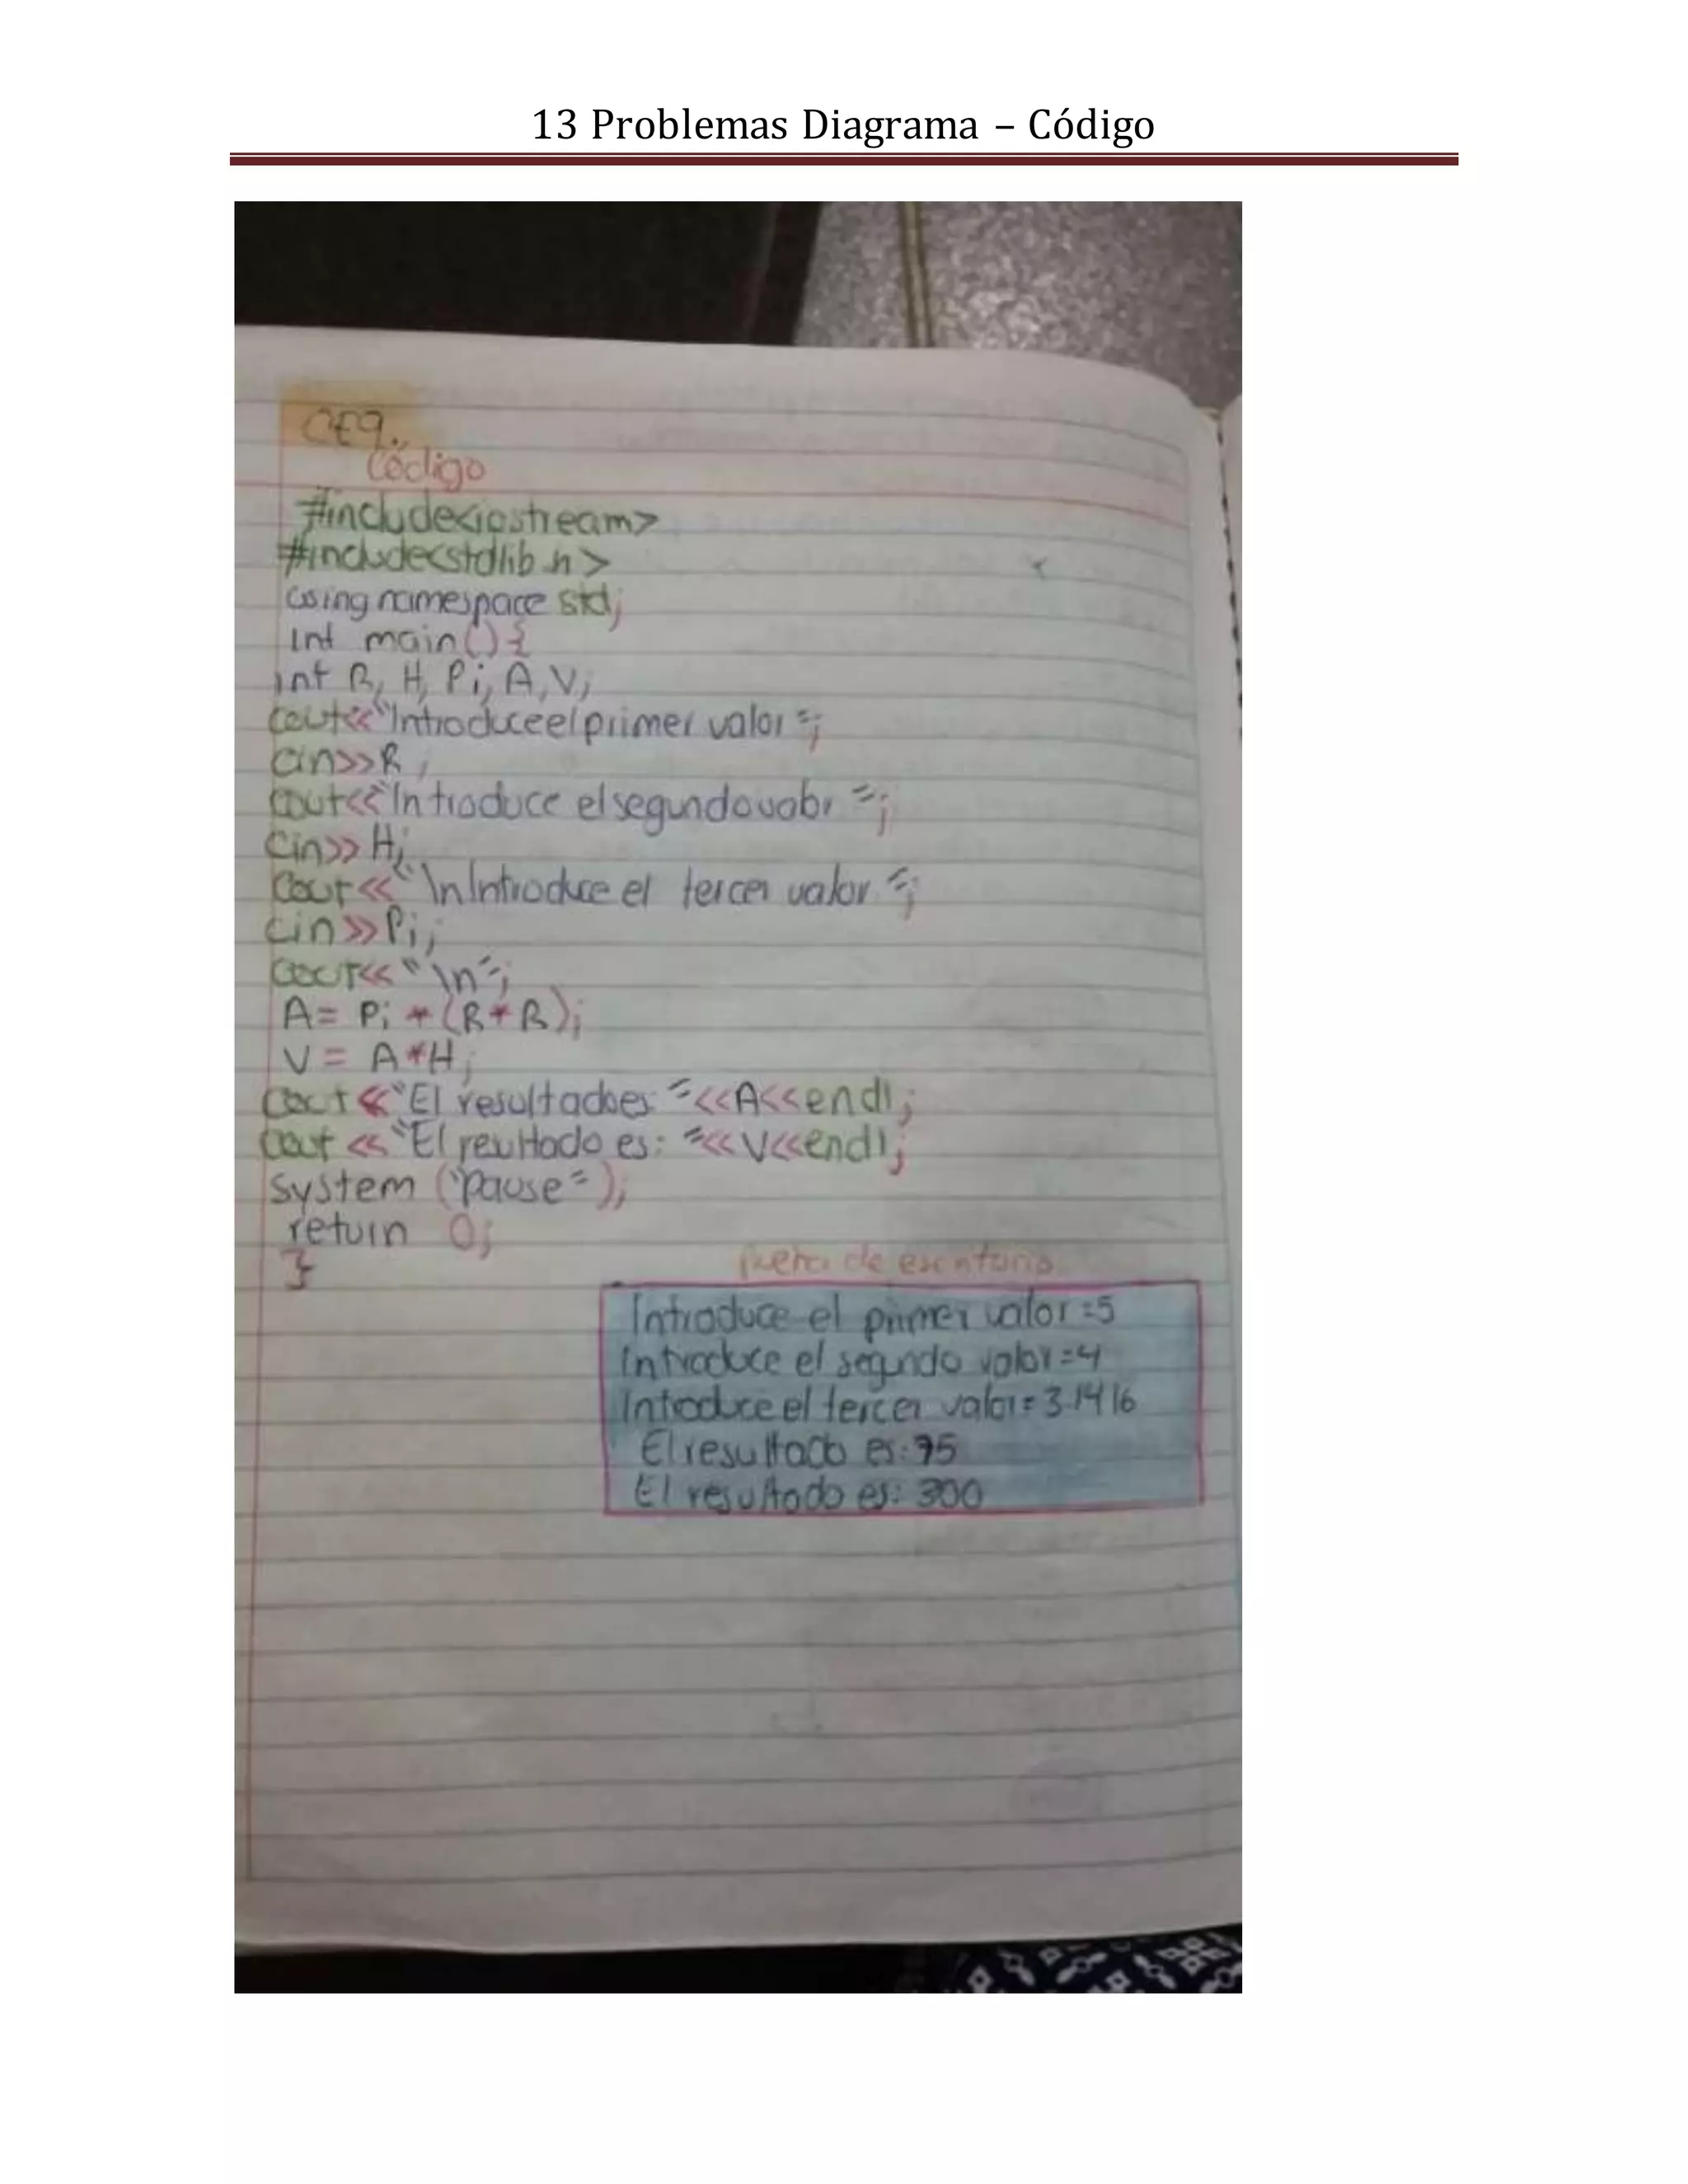 13 Problemas Diagrama – Código
CE9.
Código
#include<iostream>
#include<stdlib.h>
using namespace std;
int main(){
int R, H, Pi, A, V;
cout<<"Introduce el primer valor =";
cin>>R;
cout<<"Introduce el segundo valor =";
cin>>H;
cout<<"\nIntroduce el tercer valor =";
cin>>Pi;
cout<<"\n";
A= Pi *(R*R);
V= A*H;
cout<<"El resultado es: "<<A<<endl;
cout<<"El resultado es: "<<V<<endl;
system ("pause");
return 0;
}
de escritorio
Introduce el primer valor =5
Introduce el segundo valor =4
Introduce el tercer valor = 3.1416
El resultado es: 75
El resultado es: 300